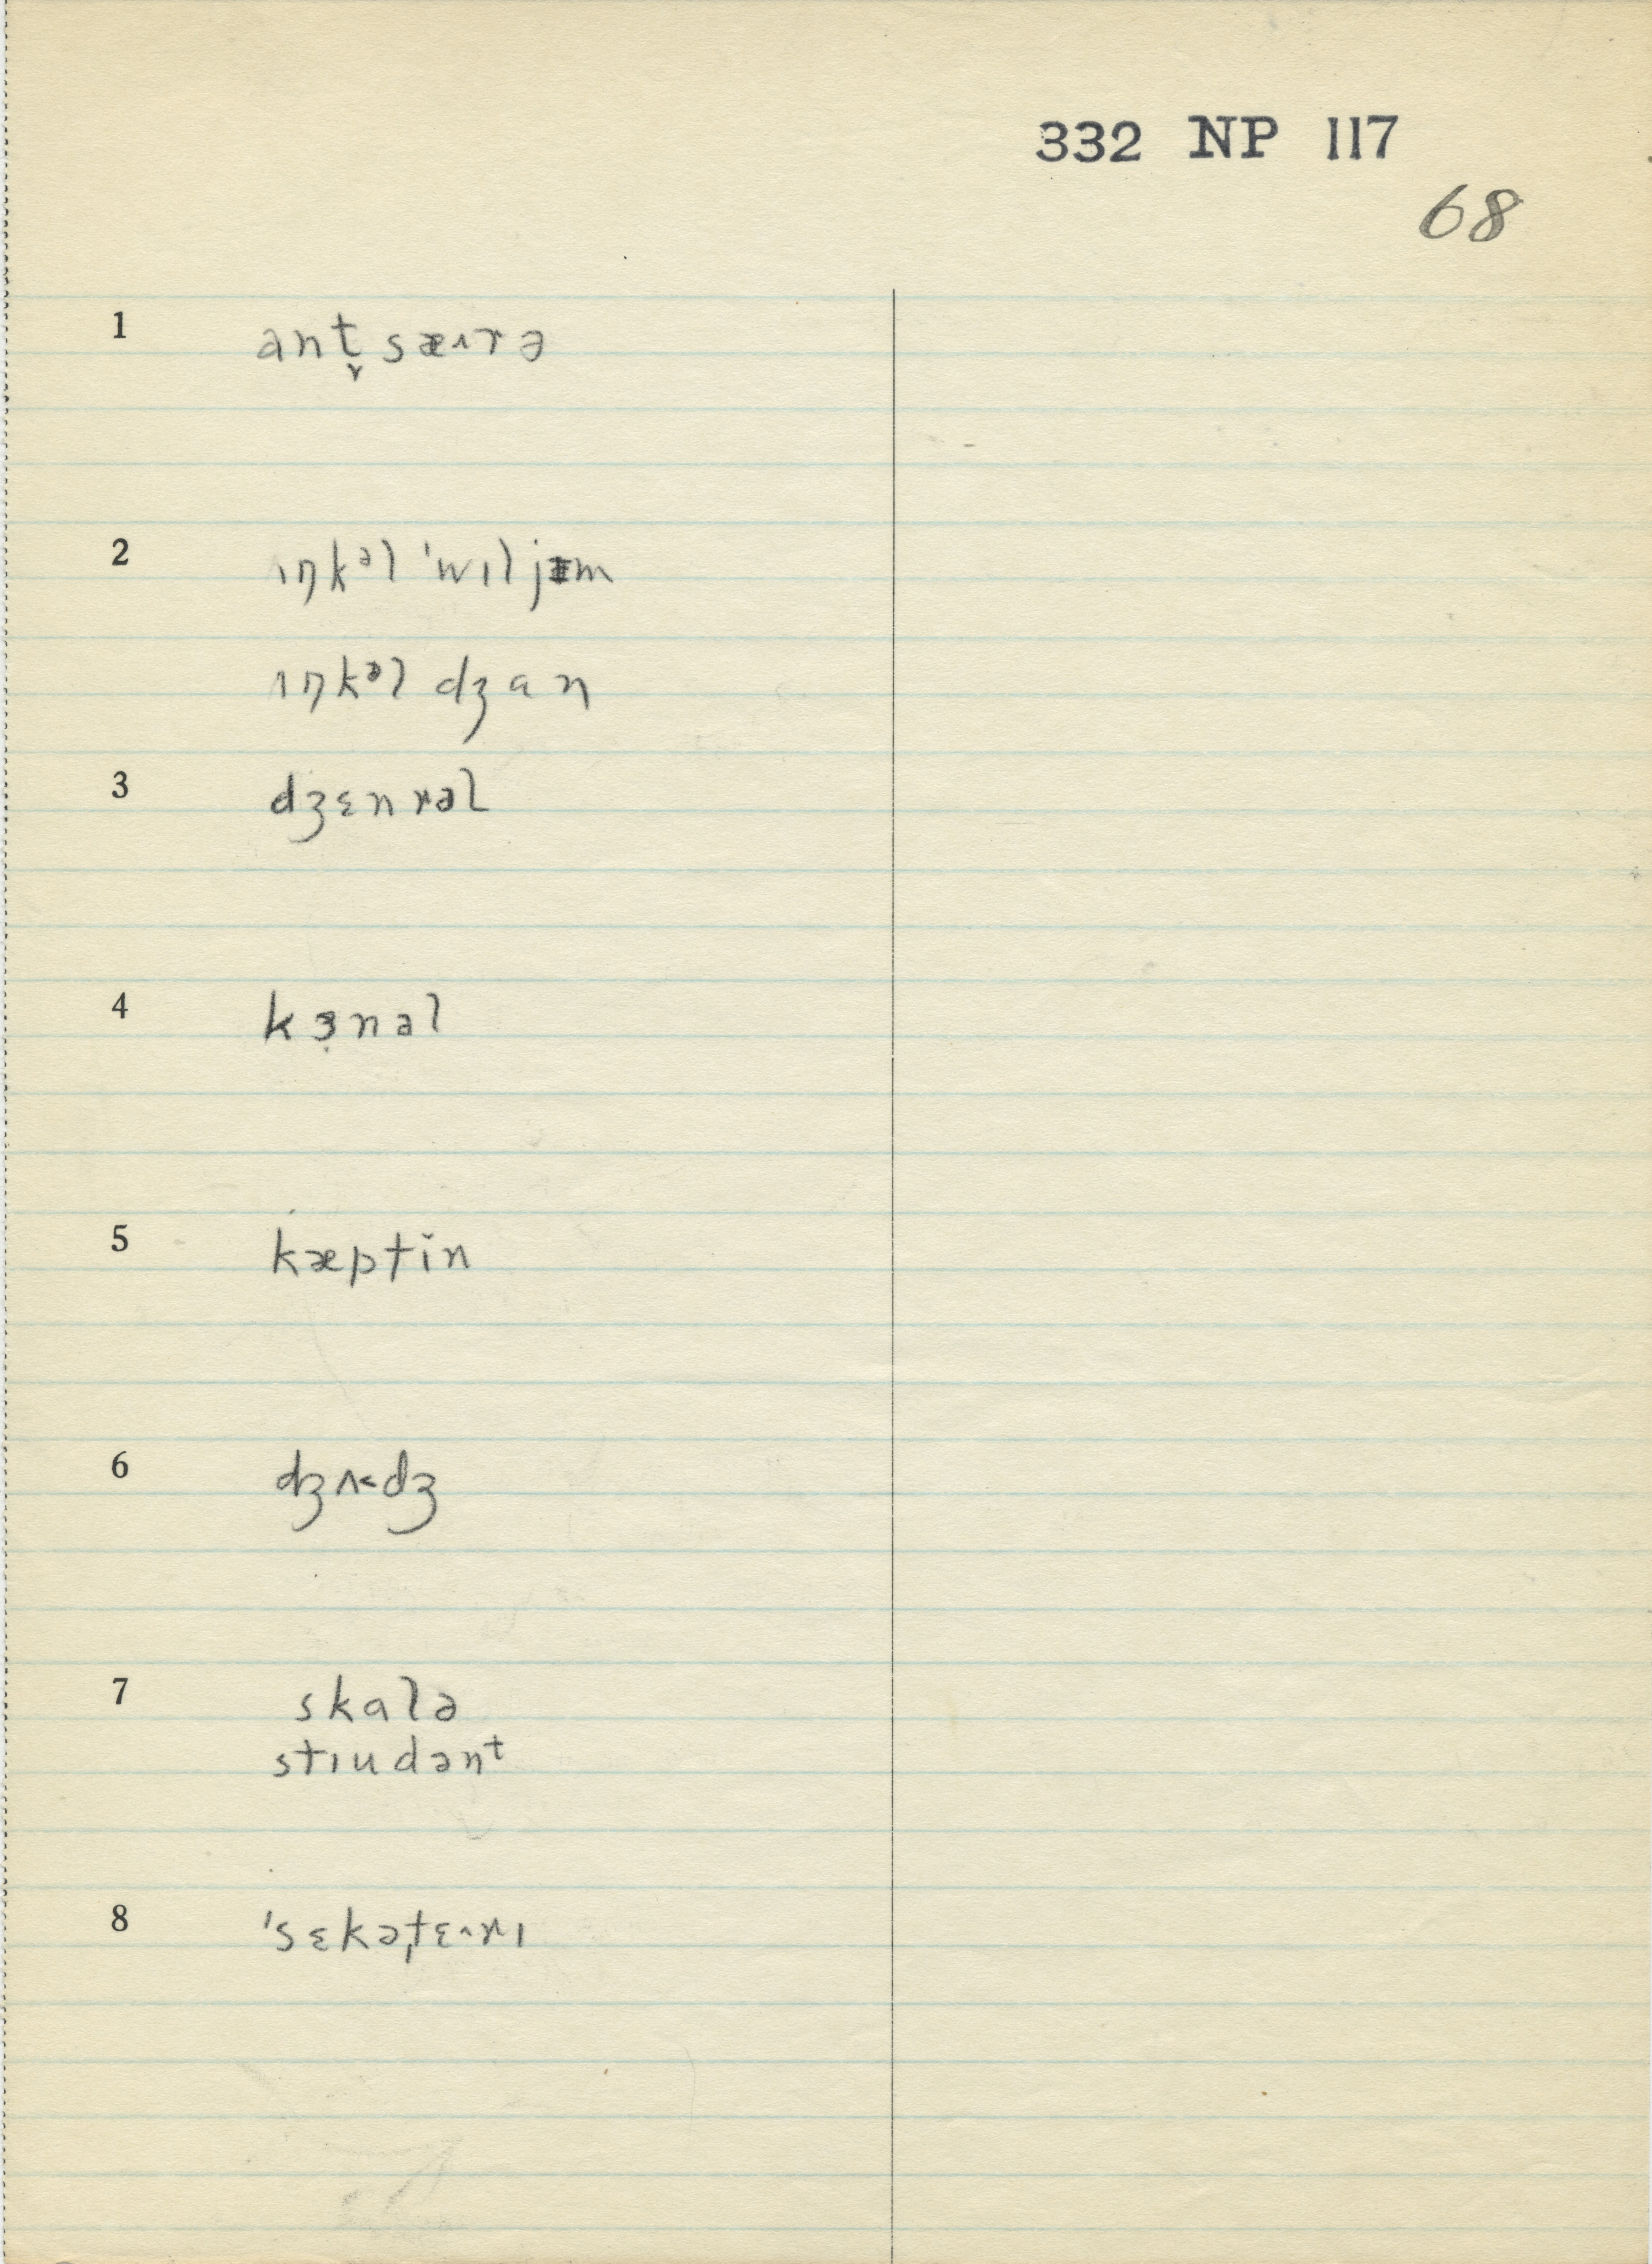 332 NP 117
68
1 ant̬ sæ˄rə
2 ɪŋkᵊl 'wɪljɪm
ɪŋkᵊl dʒan
3 dʒɛnrəl
4 kɜ̣nəl
5 kæptɪ̆n
6 dʒʌ˂dʒ
7 skalə
stɪudənᵗ
8 'sɛkəˌtɛ˄rɪ